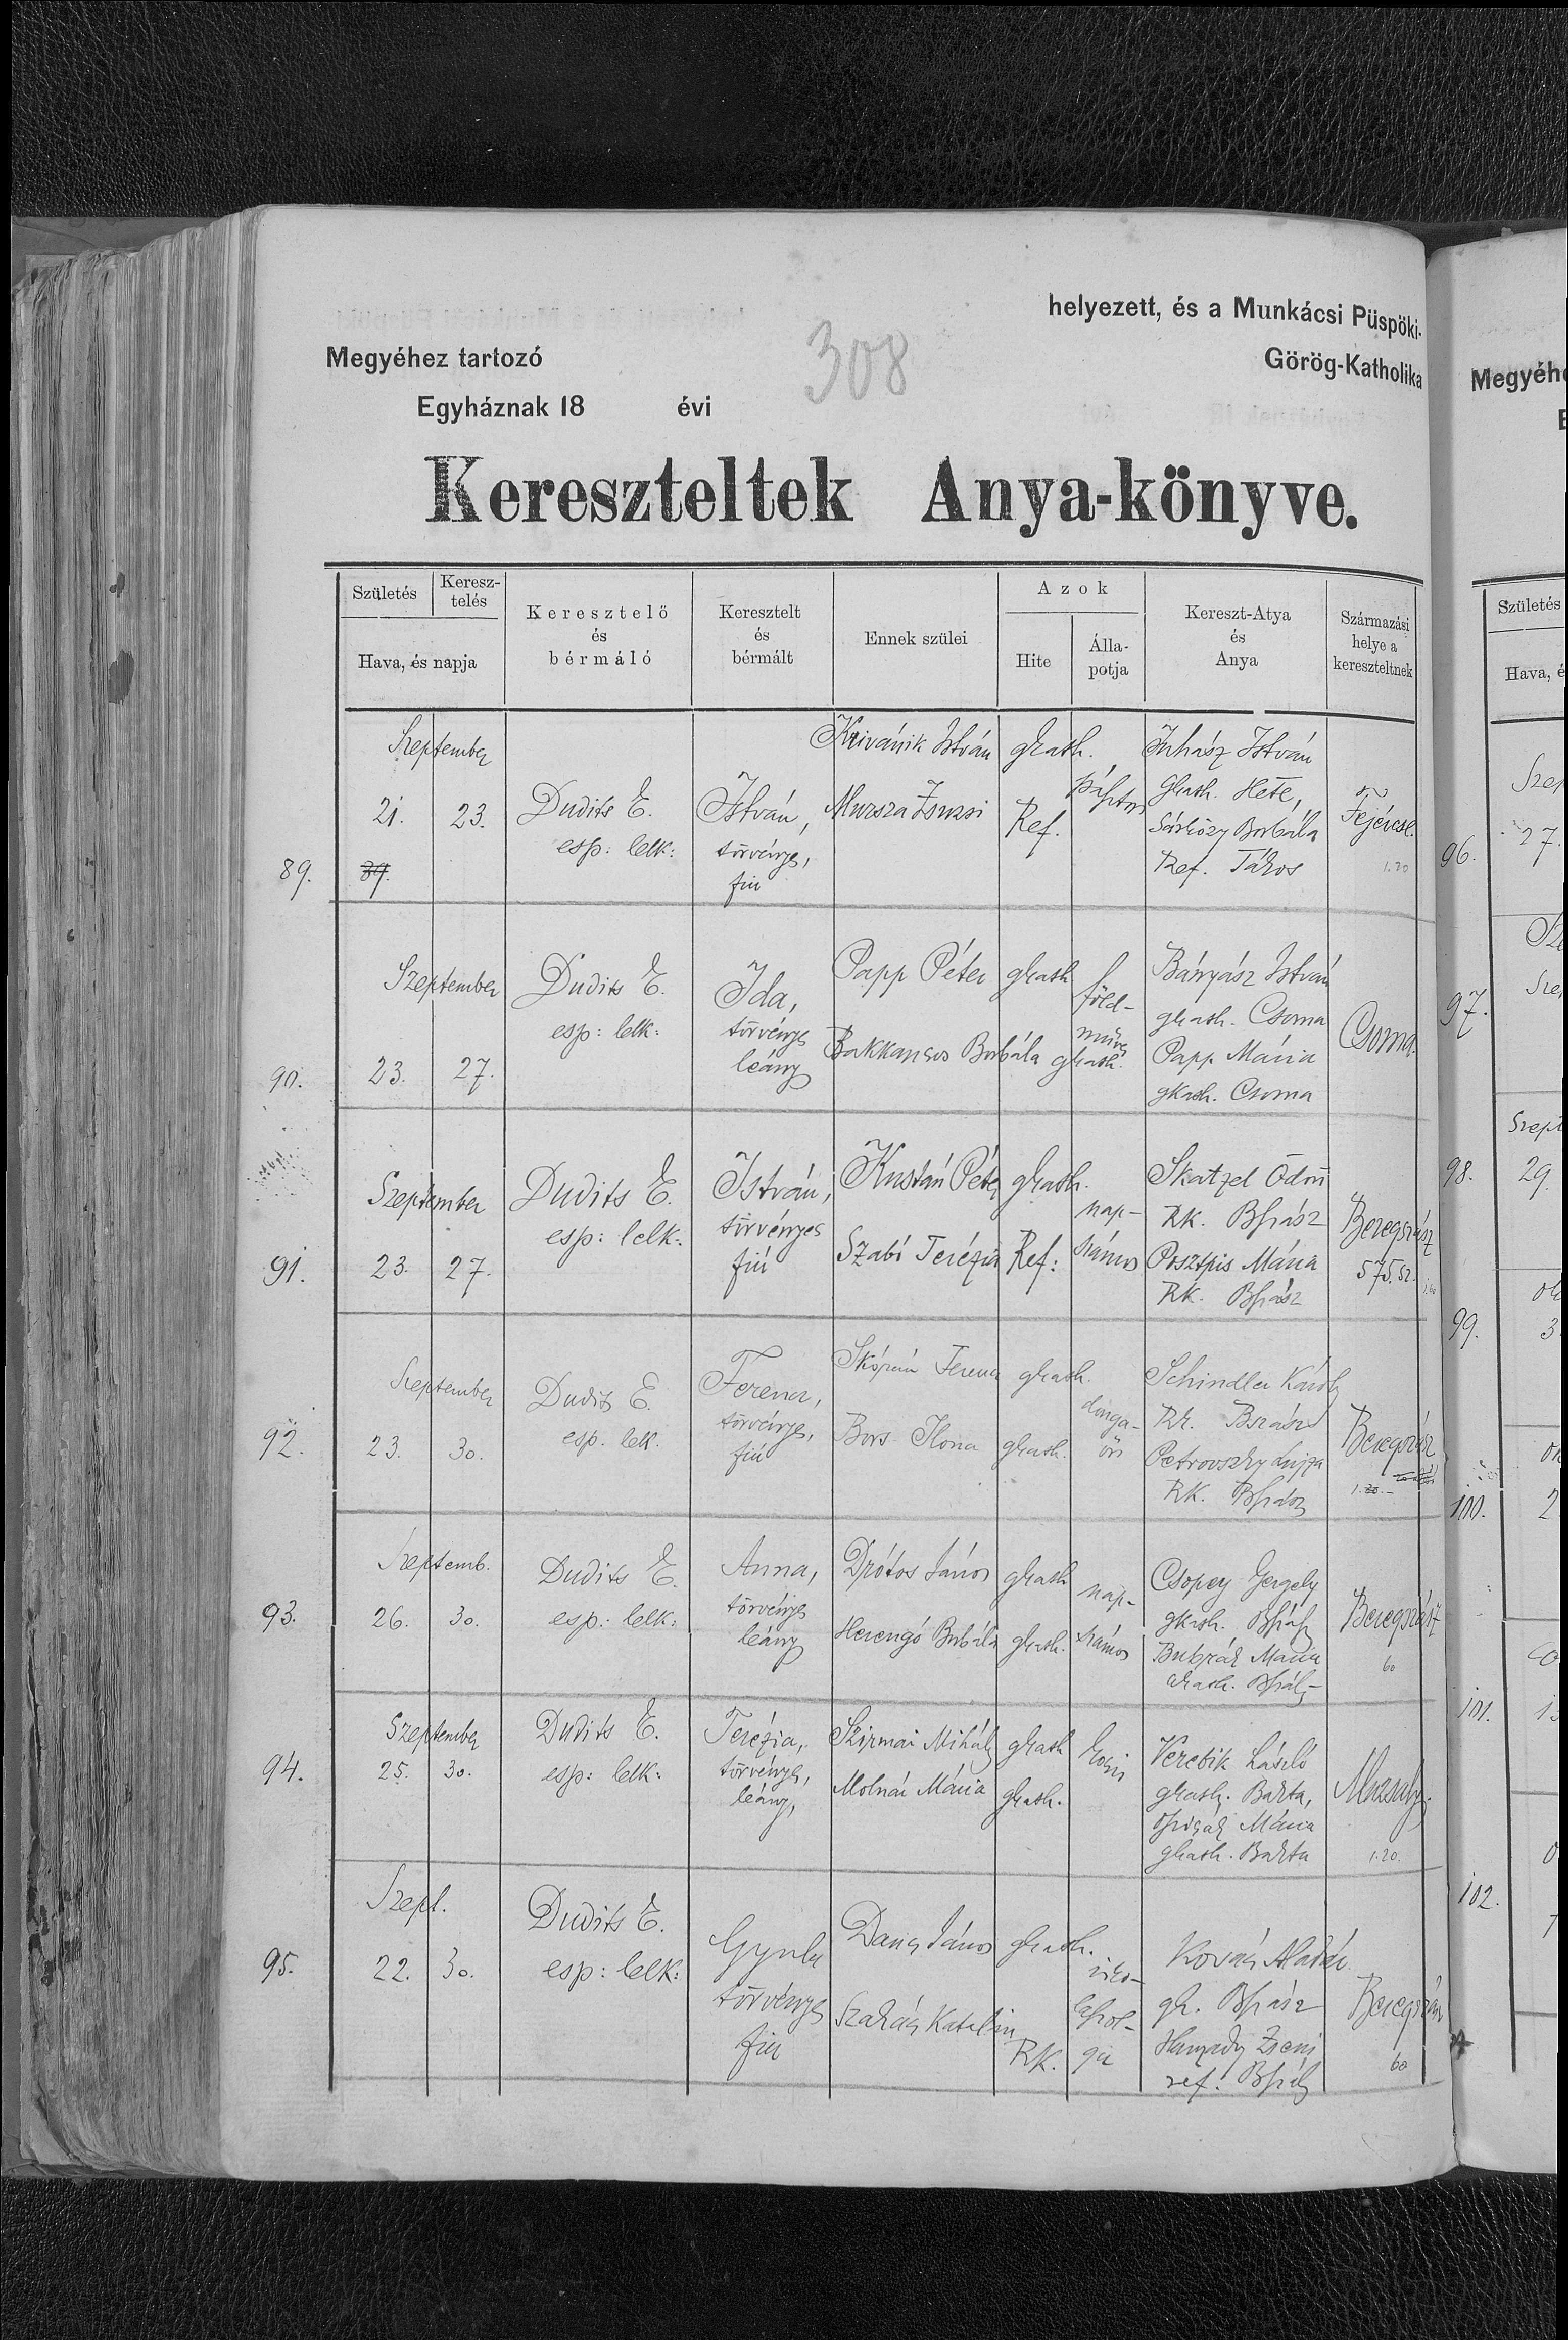 helyezett, és a Munkácsi Püspöki-
Megyéhez tartozó
308
Görög-Katholika
Egyháznak 18 évi
Kereszteltek Anya-könyve.
Születés
Keresz-
telés
Hava, és napja
Keresztelö
és
bérmáló
Keresztelt
és
bérmált
Ennek szülei
Azok
Hite
Álla-
potja
Kereszt-Atya
és
Anya
Származási
helye a
kereszteltnek
89.
September
21. 23.
39.
Dudits E.
esp: lelk:
István,
törvényes,
fiú
Krivánik István
Murza Zsuzsi
gkath.
Ref.
pásztor
Juhász István
gkath. Hete,
Sárközy Borbála
Ref. Tákos
Fejércse.
1.20
90.
Szeptember
23. 27.
Dudits E.
esp: lelk:
Ida,
törvényes
leány
Papp Péter
Borbála
gkath
gkath.
föld-
műves
Bányász István
gkath. Csoma
Papp Mária
gkath. Csoma
Csoma.
91.
Szeptember
23. 27.
Dudits E.
esp: lelk:
István,
törvényes
fiú
Kustán Péter
Szabó Terézia
gkath.
Ref:
nap-
számos
Skatzel Ödön
RK. Bhász
Mária
RK. Bhász
Beregszász
575.sz.
92.
Szeptember
23. 30.
Dudits E.
esp. lelk.
Ferenc,
törvényes,
fiú
Ferenc
Bors Ilona
gkath.
gkath.
Schindler Károly
RK. Bszász
Petrovszky Lujza
RK. Bhász
Beregszász
93.
Szeptemb.
26. 30.
Dudits E.
esp: lelk:
Anna,
törvényes
leány
Drótos János
Herengó Borbála
gkath
gkath.
nap-
számos
Csopey Gergely
gkath. Bhász
Mária
gkath. Bhász
Beregszász
60
94.
Szeptember
25. 30.
Dudits E.
esp: lelk:
Terézia,
törvényes,
leány,
Szirmai Mihály
Molnár Mária
gkath
gkath.
kocsis
Verebik László
gkath. Barta,
Mária
gkath. Barta
Muzsaly.
1.20.
95.
Szept.
22. 30.
Dudits E.
esp: lelk:
Gyula
törvényes
fiú
János
Szakács Katalin
gkath.
RK.
Kovács Aladár
gk. Bhász
ref. Bhász
Beregszász
60
Megyéhe
Születés
Hava, é
96.
27.
97.
98.
29.
99.
3
100.
2
101.
102.